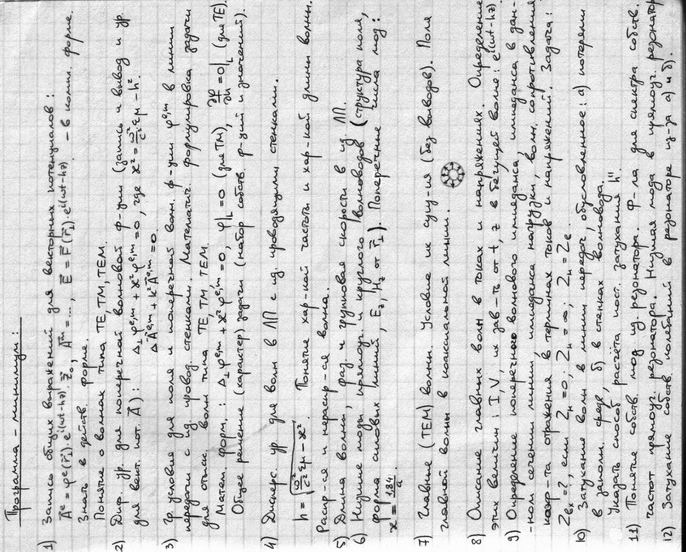 Программа - минимум:
1) Запись общих выражений для векторных потенциалов:
A^e = φ^e(r⊥)·e^{i(ωt-hz)}·z₀, A^m = ..., E = F(r⊥)·e^{i(ωt-hz)} - в компл. форме.
Знать в действ. форме.
Понятие о волнах типа TE, TM, TEM.
2) Дифф. ур. для поперечной волновой ф-ции (запись и вывод из ур.
для вект. пот. A): Δ⊥φ^{e,m} + ϰ²φ^{e,m} = 0, где ϰ² = ω²/c² εμ - h².
ΔA^{e,m} + k²A^{e,m} = 0.
3) Гр. условие для поля и поперечной волн. ф-ции φ^{e,m} в линии
передачи с ид. провод. стенками. Математич. формулировка задачи
для отыск. волн типа TE, TM, TEM.
Матем. форм.: Δ⊥φ^{e,m} + ϰ²φ^{e,m} = 0, φ|_L = 0 (для TM), ∂φ/∂n = 0|_L (для TE).
Общее решение (характер) задачи (набор собств. ф-ций и значений).
4) Дисперс. ур. для волн в ЛП с ид. проводящими стенками.
h = √(ω²/c² εμ - ϰ²). Понятие хар-кой частоты и хар-кой длины волны.
Распр-ся и нераспр-ся волна.
5) Длина волны, фаз. и групповая скорости в ид. ЛП.
6) Низшие моды прямоуг. и круглого волноводов (структура поля,
форма силовых линий, E_z, H_z от r⊥). Поперечные числа мод:
ϰ = 1.84/a.
7) Главные (TEM) волны. Условие их сущ-ия (без выводов). Поле
главной волны в коаксиальной линии.
8) Описание главных волн в токах и напряжениях. Определение
этих величин: I, V, их зав-ть от t, z в бегущей волне: e^{i(ωt-hz)}
9) Определение поперечного волнового импеданса, импеданса в дан-
ном сечении линии, импеданса нагрузки, волн. сопротивления
коэф-та отражения в терминах токов и напряжений. Задача:
Z_вх = ?, если Z_н = 0; Z_н = ∞; Z_н = Z_в
10) Затухание волн в линии передач, обусловленное: а) потерями
в заполн. среде, б) в стенках волновода.
Указать способ расчёта пост. затухания h''
11) Понятие собств. мод ид. резонатора. Ф-ла для спектра собств.
частот прямоуг. резонатора. Низшая мода в прямоуг. резонатор
12) Затухание собств. колебаний в резонаторе из-за а) и б).